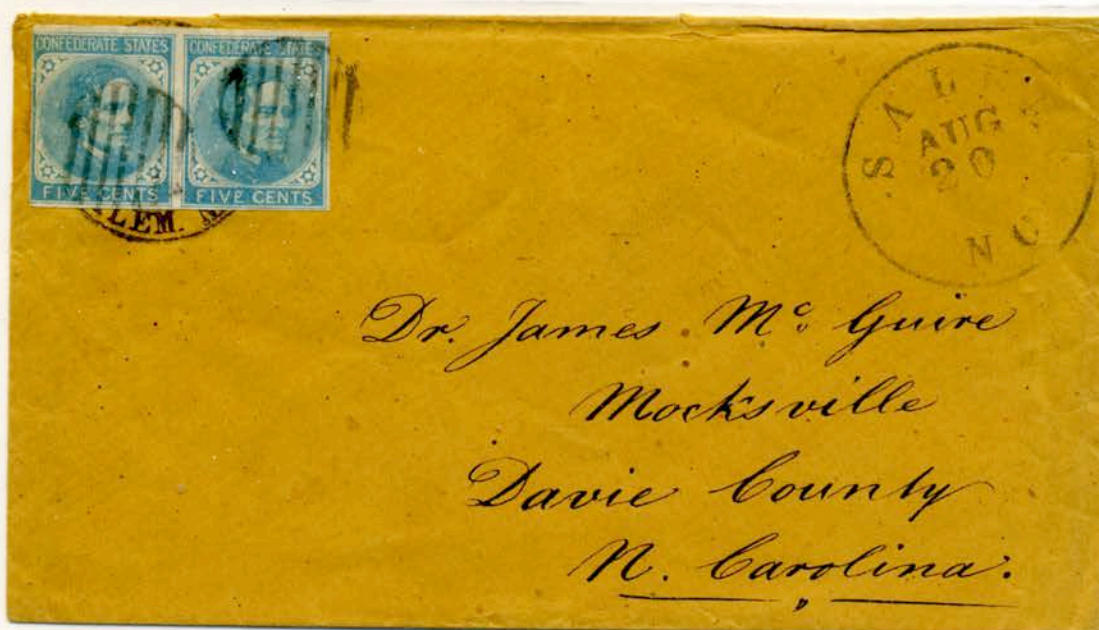 CONFEDERATE STATES CONFEDERATE STATES
FIVE CENTS FIVE CENTS
SALEM
AUG
20
N C
Dr. James Mc. Guire
Mocksville
Davie County
N. Carolina.